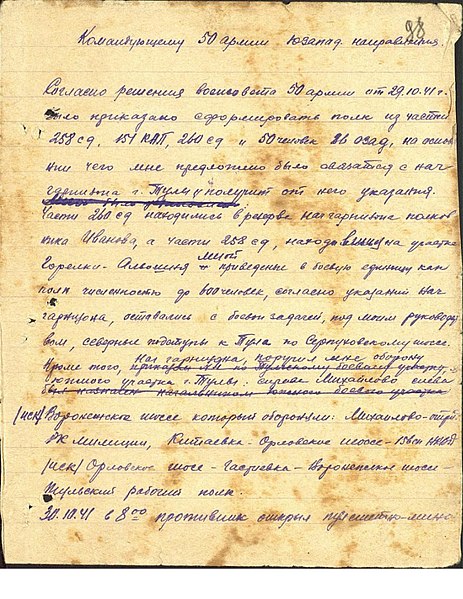 88
Командующему 50 армии Юзапад. направления.
Согласно решения военсовета 50 армии от 29.10.41 г.
было приказано сформировать полк из части
258 сд, 151 КАП, 260 сд и 50 человек, на осно
нии чего мне предложено было связаться с нач
гарнизона г. Тулы и получит от него указания.
Части 260 сд находились в резерве нач гарнизона полков
ника Иванова, а части 258 сд, находо на участке
Горелки - мной приведенные в боевую единицу как
полк численностью до 600 человек, согласно указаний нач
гарнизона, оставались с боевой задачей, под моим руководс
вом, северные подступы к Тула по Серпуховскому шоссе.
Нач гарнизона, поручил мне оборону
Кроме того,
южного участка г. Тулы: справа Михайлово слева
(иск) Воронежское шоссе который обороняли: Михайлово - отряд
РК милиции, Китаевка - Орловское шоссе - 156 сп НКВД
(иск) Орловское шосе - - Воронежское шосе -
Тульский рабочий полк.
30.10.41 в 8 00 противник открыл